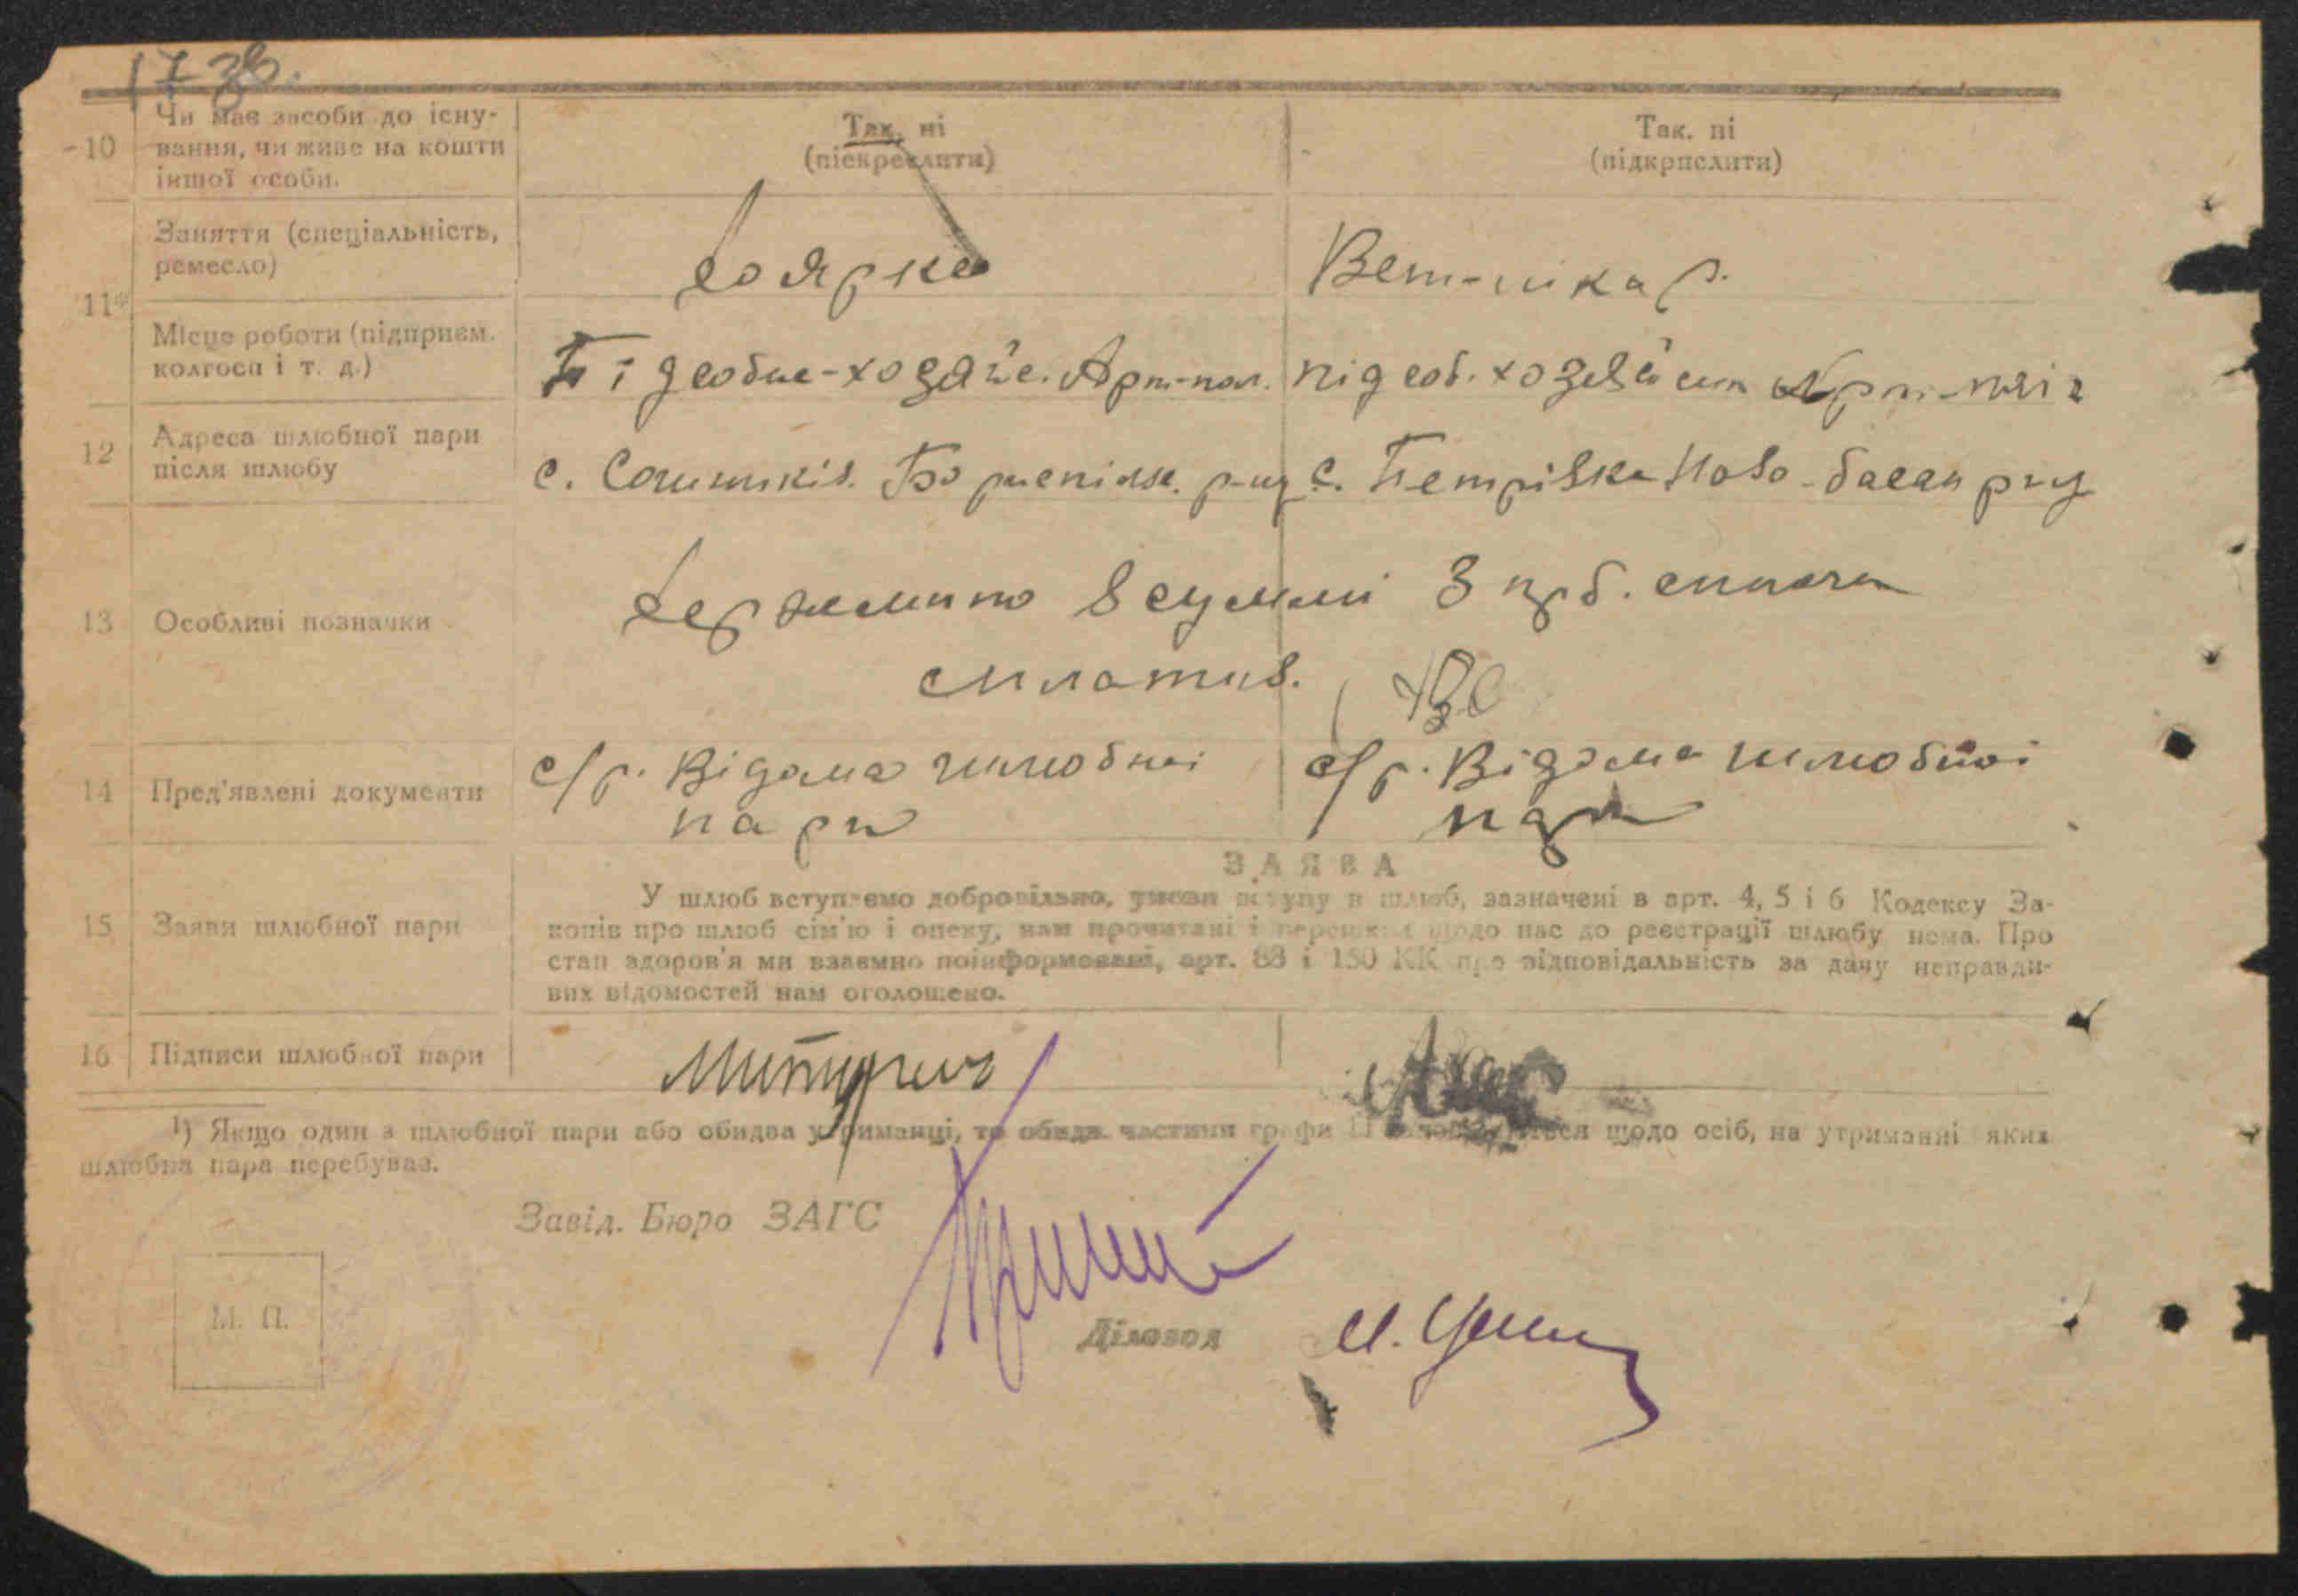 10 Чи має засоби до існу-
вання, чи живе на кошти
іншої особи.
Так, ні
(піскреслити)
Так. ні
(підкрпслити)
11
Заняття (спеціальність,
ремесло)
доярка
Вет-лікар.
Місце роботи (підприєм.
колгосп і т. д.)
Підсобне-хозяйс. Арт-пол.
підсоб. хозяйство Арт-
12 Адреса шлюбної пари
після шлюбу
с. Сошників. Бориспільс. р-ну
с. Петрівка Ново-басан р-ну
13 Особливі позначки
держмито в суммі 3 крб.
сплатив.
14 Пред'явлені документи
с/р. Відома шлюбної
пари
с/р. Відома шлюбної
пари
15 Заяви шлюбної пари
ЗАЯВА
У шлюб вступаємо добровільно, умови вступу в шлюб, зазначені в арт. 4, 5 і 6 Кодексу За-
конів про шлюб сім'ю і опеку, нам прочитані і перешкод щодо нас до реєстрації шлюбу нема. Про
стан здоров'я ми взаємно поінформовані, арт. 88 і 150 КК про відповідальність за дачу неправди-
вих відомостей нам оголошено.
16 Підписи шлюбної пари
¹) Якщо один з шлюбної пари або обидва утриманці, то обидв. частини графи 11 щодо осіб, на утриманні яких
шлюбна пара перебуває.
Завід. Бюро ЗАГС
М. П.
Діловод